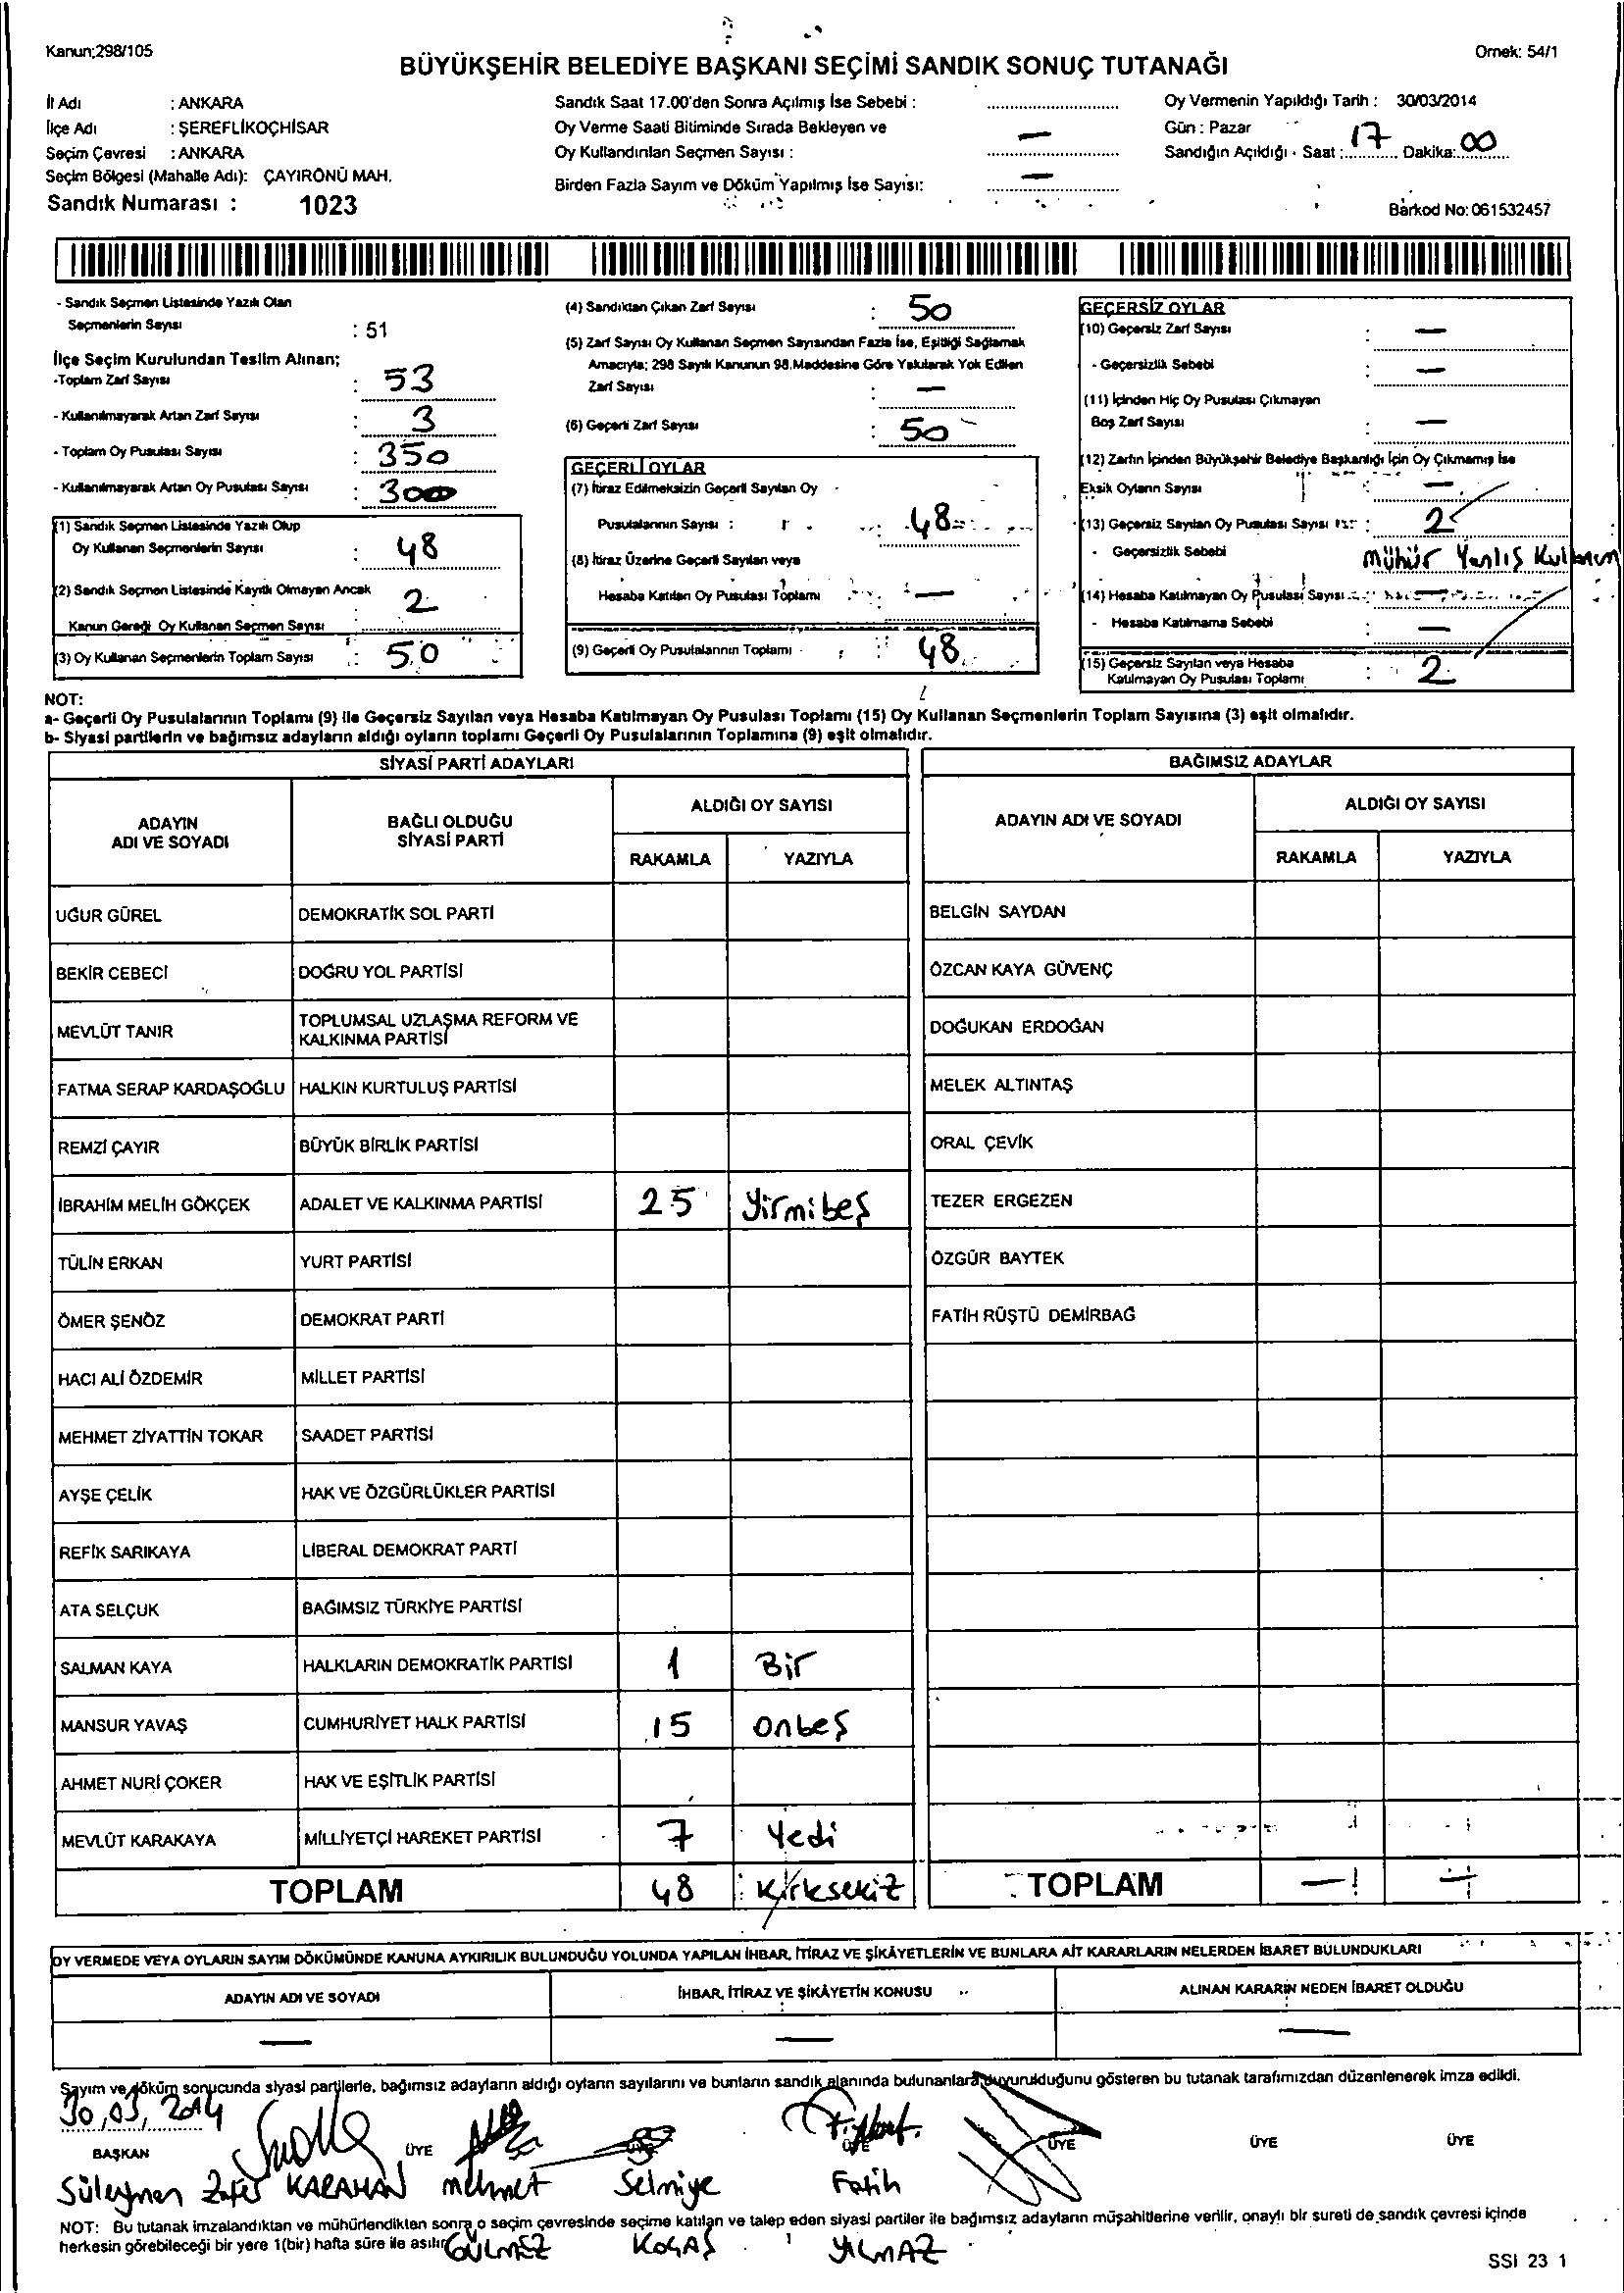 Kanun;298/105
Örnek: 54/1
BÜYÜKŞEHİR BELEDİYE BAŞKANI SEÇİMİ SANDIK SONUÇ TUTANAĞI
İl Adı : ANKARA
İlçe Adı : ŞEREFLİKOÇHİSAR
Seçim Çevresi : ANKARA
Seçim Bölgesi (Mahalle Adı): ÇAYIRÖNÜ MAH.
Sandık Numarası : 1023
Sandık Saat 17.00'den Sonra Açılmış İse Sebebi :
Oy Verme Saati Bitiminde Sırada Bekleyen ve
Oy Kullandırılan Seçmen Sayısı : —
Birden Fazla Sayım ve Döküm Yapılmış İse Sayısı: —
Oy Vermenin Yapıldığı Tarih : 30/03/2014
Gün : Pazar
Sandığın Açıldığı - Saat : 17 Dakika: 00
Barkod No: 061532457
- Sandık Seçmen Listesinde Yazılı Olan
Seçmenlerin Sayısı : 51
İlçe Seçim Kurulundan Teslim Alınan;
-Toplam Zarf Sayısı : 53
- Kullanılmayarak Artan Zarf Sayısı : 3
- Toplam Oy Pusulası Sayısı : 350
- Kullanılmayarak Artan Oy Pusulası Sayısı : 300
(1) Sandık Seçmen Listesinde Yazılı Olup
Oy Kullanan Seçmenlerin Sayısı : 48
(2) Sandık Seçmen Listesinde Kayıtlı Olmayan Ancak
Kanun Gereği Oy Kullanan Seçmen Sayısı : 2
(3) Oy Kullanan Seçmenlerin Toplam Sayısı : 50
(4) Sandıktan Çıkan Zarf Sayısı : 50
(5) Zarf Sayısı Oy Kullanan Seçmen Sayısından Fazla İse, Eşitliği Sağlamak
Amacıyla; 298 Sayılı Kanunun 98.Maddesine Göre Yakılarak Yok Edilen
Zarf Sayısı : —
(6) Geçerli Zarf Sayısı : 50
GEÇERLİ OYLAR
(7) İtiraz Edilmeksizin Geçerli Sayılan Oy
Pusulalarının Sayısı : 48
(8) İtiraz Üzerine Geçerli Sayılan veya
Hesaba Katılan Oy Pusulası Toplamı —
(9) Geçerli Oy Pusulalarının Toplamı : 48
GEÇERSİZ OYLAR
(10) Geçersiz Zarf Sayısı : —
- Geçersizlik Sebebi : —
(11) İçinden Hiç Oy Pusulası Çıkmayan
Boş Zarf Sayısı : —
(12) Zarfın İçinden Büyükşehir Belediye Başkanlığı İçin Oy Çıkmamış İse
Eksik Oyların Sayısı : —
(13) Geçersiz Sayılan Oy Pusulası Sayısı : 2
- Geçersizlik Sebebi Mühür Yanlış Kullanım
(14) Hesaba Katılmayan Oy Pusulası Sayısı —
- Hesaba Katılmama Sebebi : —
(15) Geçersiz Sayılan veya Hesaba
Katılmayan Oy Pusulası Toplamı : 2
NOT:
a- Geçerli Oy Pusulalarının Toplamı (9) ile Geçersiz Sayılan veya Hesaba Katılmayan Oy Pusulası Toplamı (15) Oy Kullanan Seçmenlerin Toplam Sayısına (3) eşit olmalıdır.
b- Siyasi partilerin ve bağımsız adayların aldığı oyların toplamı Geçerli Oy Pusulalarının Toplamına (9) eşit olmalıdır.
SİYASİ PARTİ ADAYLARI
ADAYIN ADI VE SOYADI
BAĞLI OLDUĞU SİYASİ PARTİ
ALDIĞI OY SAYISI
RAKAMLA YAZIYLA
UĞUR GÜREL DEMOKRATİK SOL PARTİ
BEKİR CEBECİ DOĞRU YOL PARTİSİ
MEVLÜT TANIR TOPLUMSAL UZLAŞMA REFORM VE
KALKINMA PARTİSİ
FATMA SERAP KARDAŞOĞLU HALKIN KURTULUŞ PARTİSİ
REMZİ ÇAYIR BÜYÜK BİRLİK PARTİSİ
İBRAHİM MELİH GÖKÇEK ADALET VE KALKINMA PARTİSİ 25 Yirmibeş
TÜLİN ERKAN YURT PARTİSİ
ÖMER ŞENÖZ DEMOKRAT PARTİ
HACI ALİ ÖZDEMİR MİLLET PARTİSİ
MEHMET ZİYATTİN TOKAR SAADET PARTİSİ
AYŞE ÇELİK HAK VE ÖZGÜRLÜKLER PARTİSİ
REFİK SARIKAYA LİBERAL DEMOKRAT PARTİ
ATA SELÇUK BAĞIMSIZ TÜRKİYE PARTİSİ
SALMAN KAYA HALKLARIN DEMOKRATİK PARTİSİ 1 Bir
MANSUR YAVAŞ CUMHURİYET HALK PARTİSİ 15 onbeş
AHMET NURİ ÇOKER HAK VE EŞİTLİK PARTİSİ
MEVLÜT KARAKAYA MİLLİYETÇİ HAREKET PARTİSİ 7 Yedi
TOPLAM 48 Kırksekiz
BAĞIMSIZ ADAYLAR
ADAYIN ADI VE SOYADI
ALDIĞI OY SAYISI
RAKAMLA YAZIYLA
BELGİN SAYDAN
ÖZCAN KAYA GÜVENÇ
DOĞUKAN ERDOĞAN
MELEK ALTINTAŞ
ORAL ÇEVİK
TEZER ERGEZEN
ÖZGÜR BAYTEK
FATİH RÜŞTÜ DEMİRBAĞ
TOPLAM — —
OY VERMEDE VEYA OYLARIN SAYIM DÖKÜMÜNDE KANUNA AYKIRILIK BULUNDUĞU YOLUNDA YAPILAN İHBAR, İTİRAZ VE ŞİKÂYETLERİN VE BUNLARA AİT KARARLARIN NELERDEN İBARET BULUNDUKLARI
ADAYIN ADI VE SOYADI İHBAR, İTİRAZ VE ŞİKÂYETİN KONUSU ALINAN KARARIN NEDEN İBARET OLDUĞU
— — —
Sayım ve döküm sonucunda siyasi partilerle, bağımsız adayların aldığı oyların sayılarını ve bunların sandık alanında bulunanlara duyurulduğunu gösteren bu tutanak tarafımızdan düzenlenerek imza edildi.
30,03,2014
BAŞKAN ÜYE ÜYE ÜYE ÜYE ÜYE ÜYE
Süleyman Zafer KARAHAN Mehmet Selmiye Fatih
NOT: Bu tutanak imzalandıktan ve mühürlendikten sonra o seçim çevresinde seçime katılan ve talep eden siyasi partiler ile bağımsız adayların müşahitlerine verilir, onaylı bir sureti de sandık çevresi içinde
herkesin görebileceği bir yere 1(bir) hafta süre ile asılır.
GÜLMEZ KOÇAŞ YILMAZ
SSI 23 1